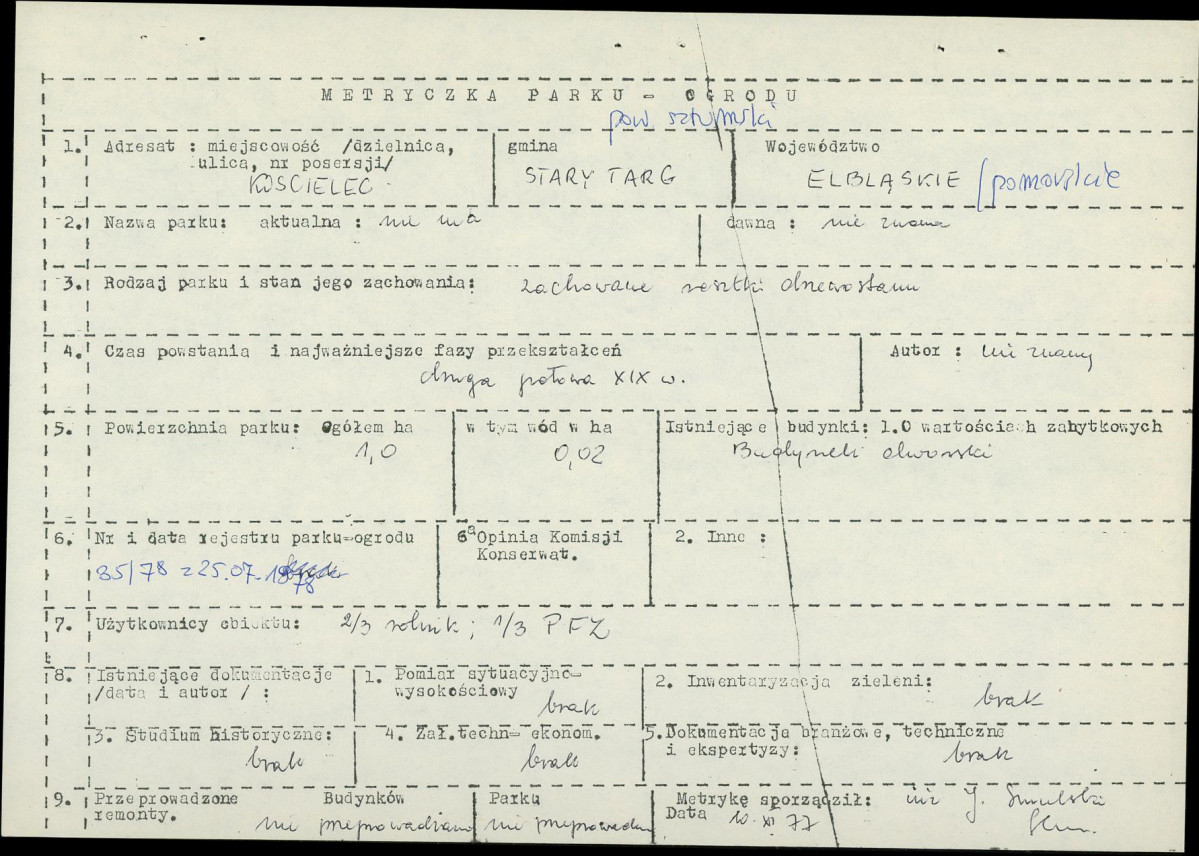 METRYCZKA PARKU - OGRODU
pow. sztumski
1. Adresat : miejscowość /dzielnica, ulica, nr posersji/
KOŚCIELEC
gmina
STARY TARG
Województwo
ELBLĄSKIE /pomorskie
2. Nazwa parku: aktualna : nie ma
dawna : nie znana
3. Rodzaj parku i stan jego zachowania: zachowane resztki drzewostanu
4. Czas powstania i najważniejsze fazy przekształceń
druga połowa XIX w.
Autor : nie znany
5. Powierzchnia parku: Ogółem ha
1,0
w tym wód w ha
0,02
Istniejące budynki: 1.O wartościach zabytkowych
Budynek dworski
6. Nr i data rejestru parku-ogrodu
85/78 z 25.07.1978
6a Opinia Komisji
Konserwat.
2. Inne :
7. Użytkownicy obiektu: 2/3 rolnik; 1/3 PFZ
8. Istniejące dokumentacje
/data i autor / :
1. Pomiar sytuacyjno-
wysokościowy
brak
2. Inwentaryzacja zieleni:
brak
3. Studium historyczne:
brak
4. Zał.techn- ekonom.
brak
5.Dokumentacja branżowe, techniczne
i ekspertyzy:
brak
9. Przeprowadzone
remonty.
Budynków
nie przeprowadzano
Parku
nie przeprowadzano
Metrykę sporządził: inż J.
Data 10 XI 77